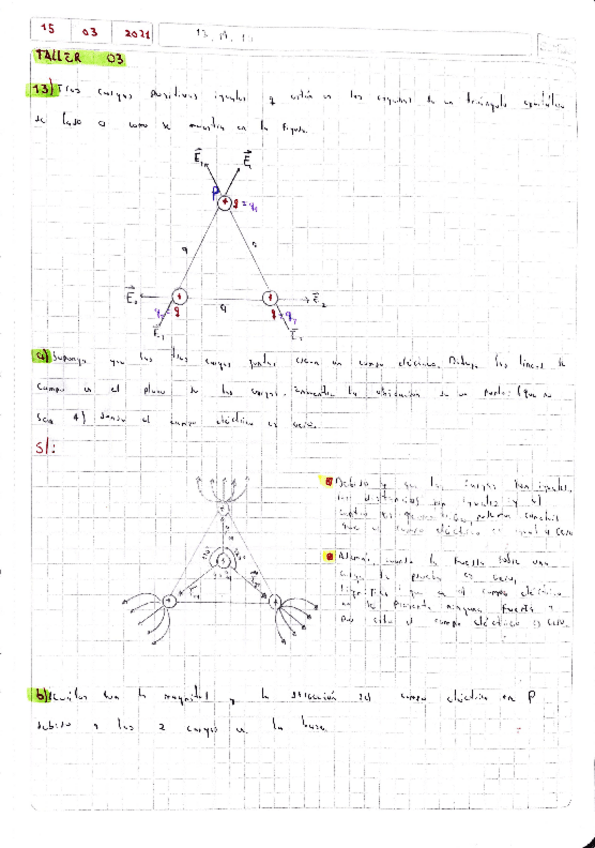 15 03 2021
TALLER 03
13) Tres cargas positivas iguales q están en las esquinas de un triángulo equilátero
de lado a como se muestra en la figura.
E₁ E₁
P
q = q₁
a a
E₂ E₂
q₂ = q a q = q₃
E₁ E₁
a) Suponga que las tres cargas juntas crean un campo eléctrico. Dibuje las líneas de
campo en el plano de las cargas. Encuentre la ubicación de un punto (que no
sea ∞) donde el campo eléctrico es cero.
S/:
Debido a que las cargas son iguales,
las distancias son iguales y el
podemos concluir
que el campo eléctrico es igual a cero
Además, cuando la fuerza sobre una
carga de prueba es cero,
significa que en el campo eléctrico
no se presenta ninguna fuerza y
por esto el campo eléctrico es cero.
b) ¿Cuáles son la magnitud y la dirección del campo eléctrico en P
debido a las 2 cargas en la base